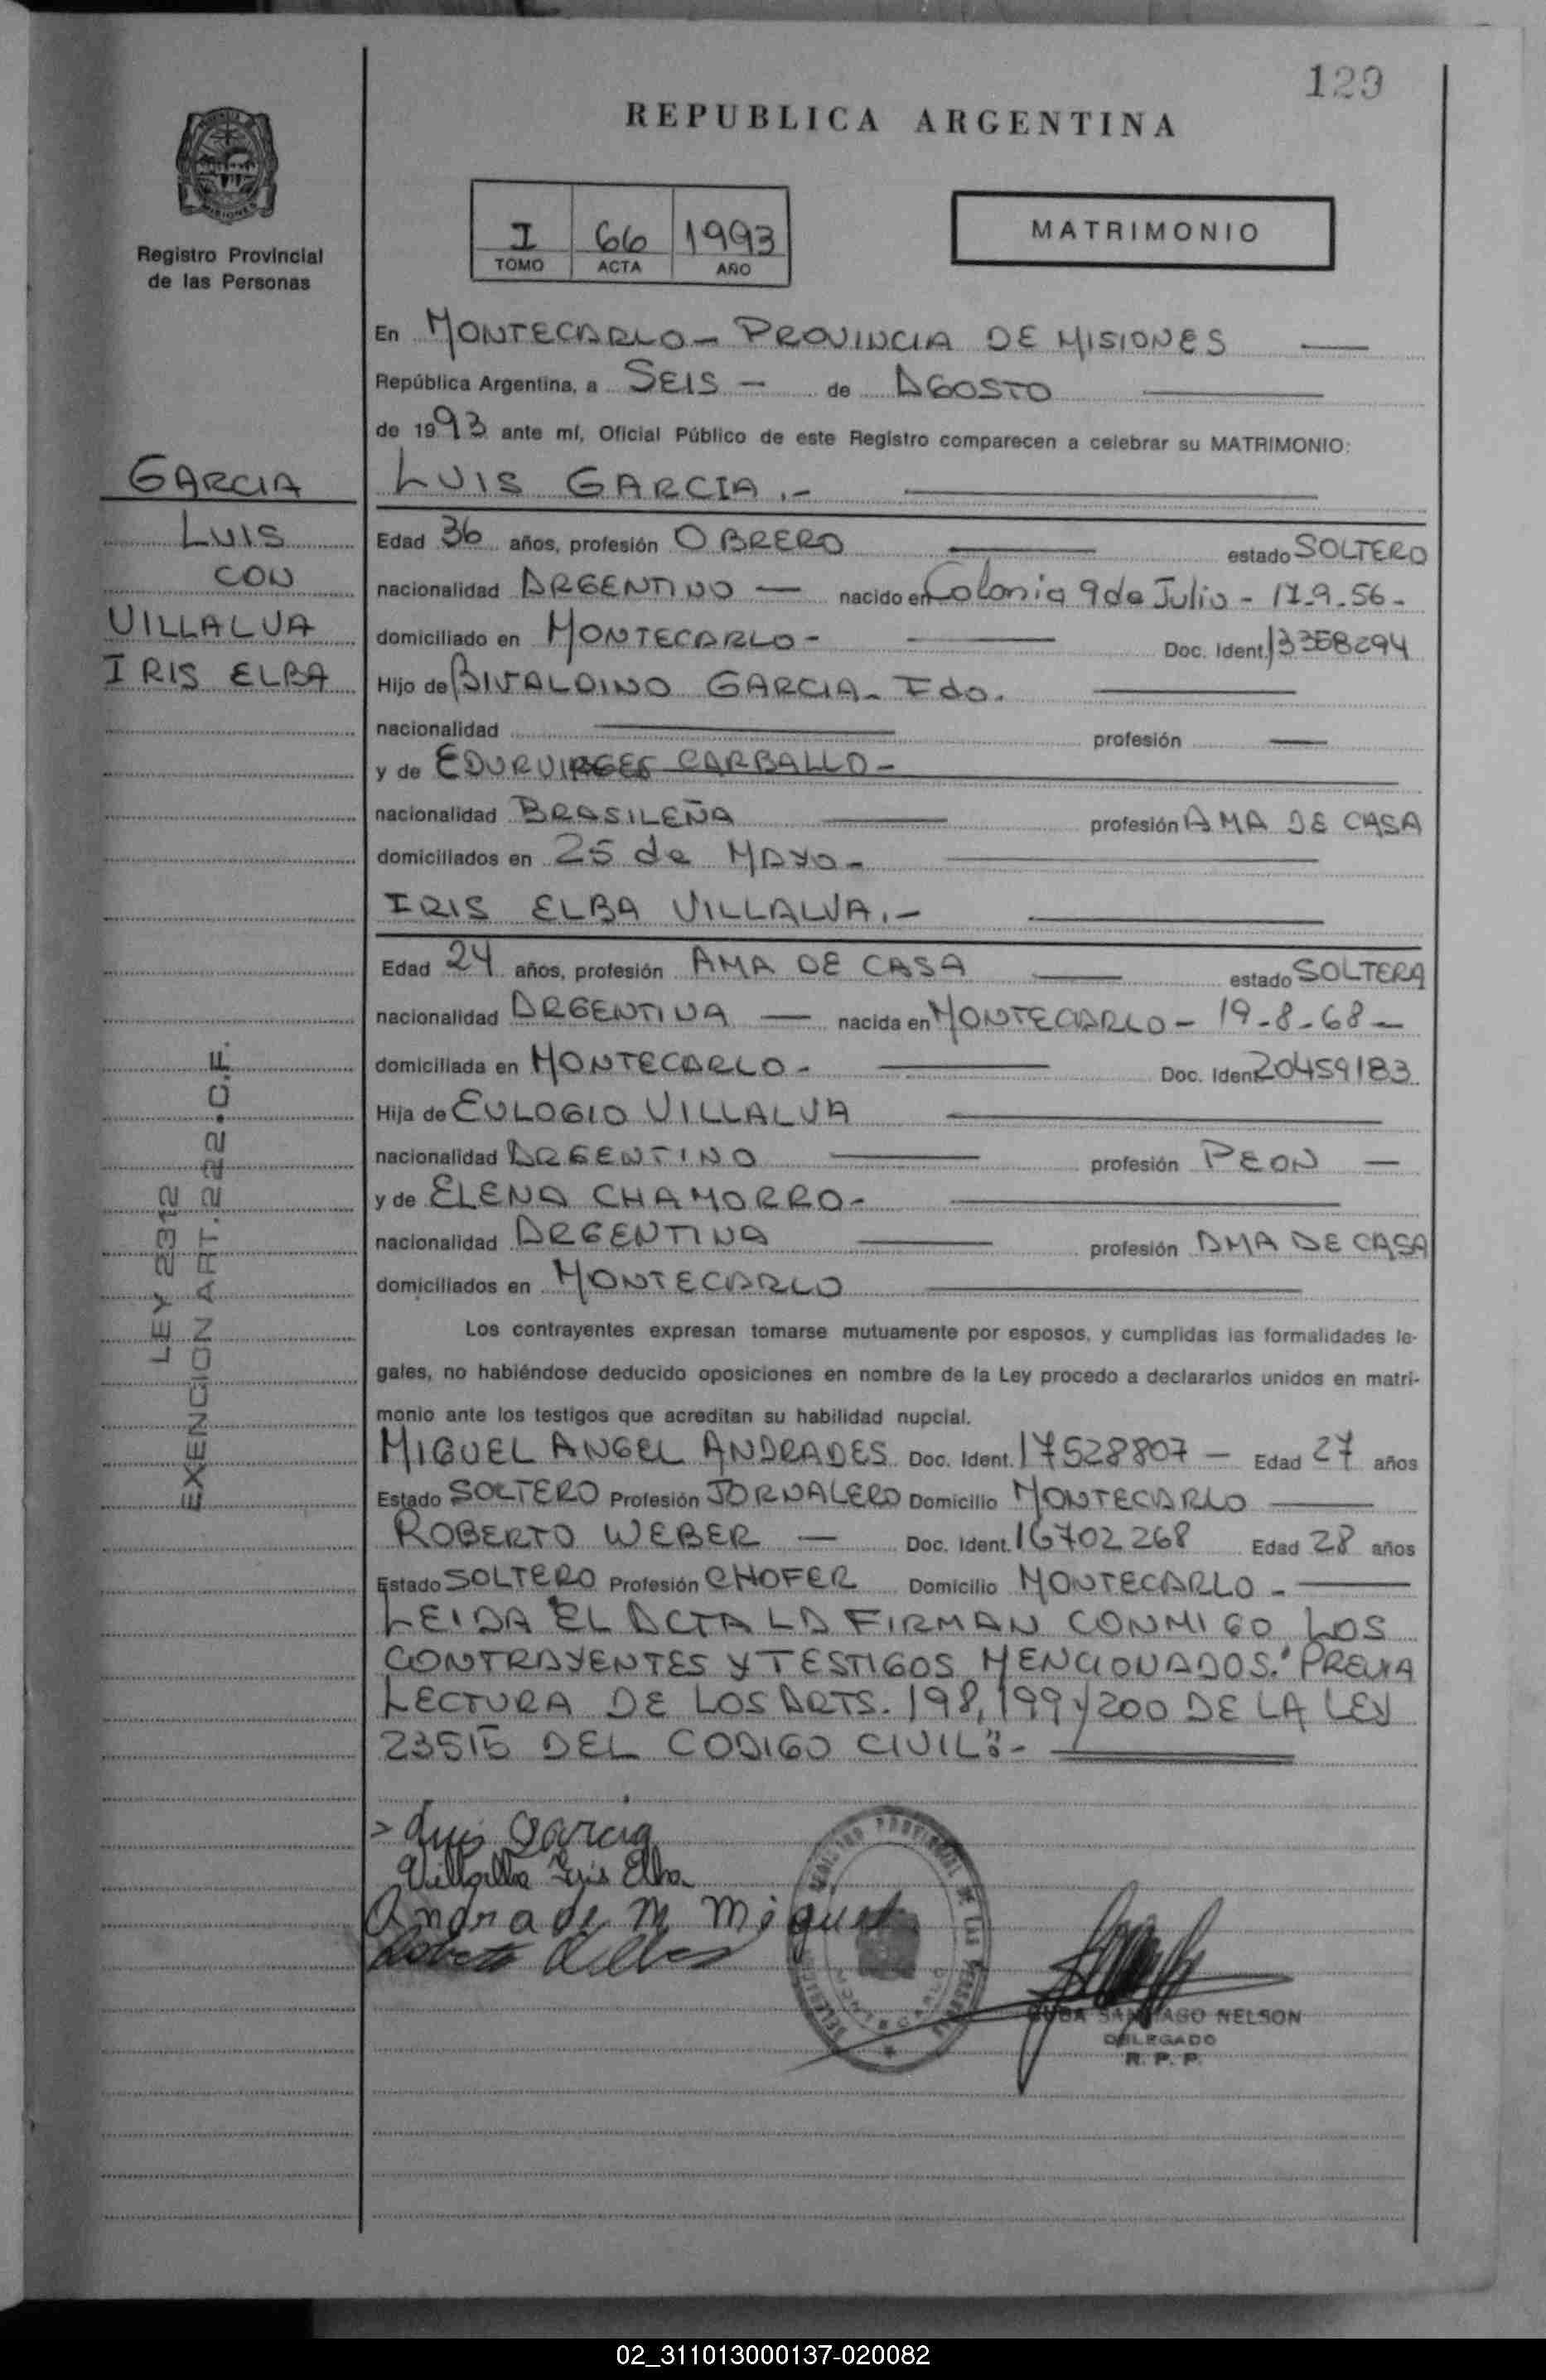 129
REPUBLICA ARGENTINA
Registro Provincial
de las Personas
I 66 1993
TOMO ACTA AÑO
MATRIMONIO
En MONTECARLO - PROVINCIA DE MISIONES
República Argentina, a SEIS - de AGOSTO
de 1993 ante mí, Oficial Público de este Registro comparecen a celebrar su MATRIMONIO:
GARCIA
LUIS
CON
VILLALVA
IRIS ELBA
LUIS GARCIA.-
Edad 36 años, profesión OBRERO estado SOLTERO
nacionalidad ARGENTINO — nacido en Colonia 9 de Julio - 17-9-56-
domiciliado en MONTECARLO - Doc. Ident. 13358294
Hijo de BIVALDINO GARCIA - Fdo.
nacionalidad — profesión —
y de CARBALLO -
nacionalidad BRASILEÑA profesión AMA DE CASA
domiciliados en 25 de MAYO -
IRIS ELBA VILLALVA.-
Edad 24 años, profesión AMA DE CASA estado SOLTERA
nacionalidad ARGENTINA — nacida en MONTECARLO - 19-8-68 -
domiciliada en MONTECARLO - Doc. Ident. 20459183
Hija de EULOGIO VILLALVA
nacionalidad ARGENTINO profesión PEON —
y de ELENA CHAMORRO -
nacionalidad ARGENTINA profesión AMA DE CASA
domiciliados en MONTECARLO
LEY 2312
EXENCION ART. 222. C.F.
Los contrayentes expresan tomarse mutuamente por esposos, y cumplidas las formalidades le-
gales, no habiéndose deducido oposiciones en nombre de la Ley procedo a declararlos unidos en matri-
monio ante los testigos que acreditan su habilidad nupcial.
MIGUEL ANGEL ANDRADES Doc. Ident. 17528807 — Edad 27 años
Estado SOLTERO Profesión JORNALERO Domicilio MONTECARLO
ROBERTO WEBER — Doc. Ident. 16702268 Edad 28 años
Estado SOLTERO Profesión CHOFER Domicilio MONTECARLO -
LEIDA EL ACTA LA FIRMAN CONMIGO LOS
CONTRAYENTES Y TESTIGOS MENCIONADOS." PREVIA
LECTURA DE LOS ARTS. 198, 199 y 200 DE LA LEY
23515 DEL CODIGO CIVIL":-
Luis Garcia
Villalba Iris Elba
Andrade M Miguel
Roberto Weber
REGISTRO PROVINCIAL * LAS PERSONAS
MONTECARLO
CUBA SANTIAGO NELSON
DELEGADO
R. P. P.
02_311013000137-020082